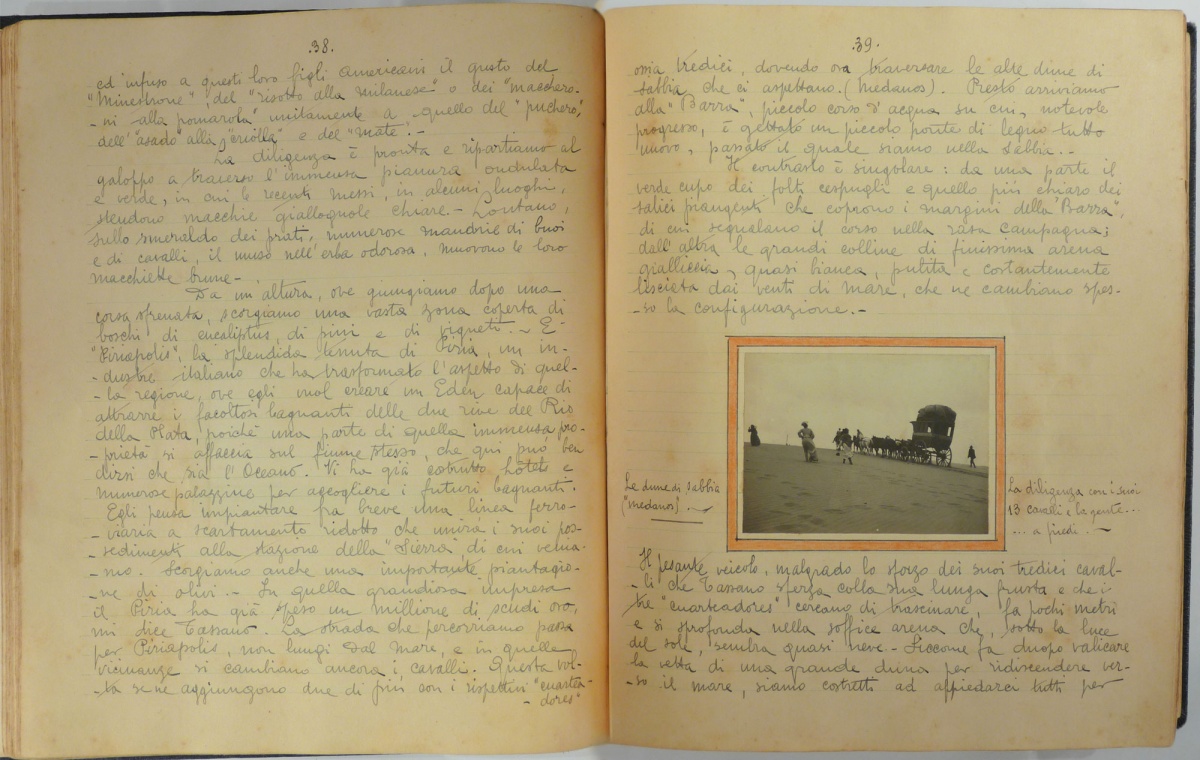 .38.
ed infuso a questi loro figli americani il gusto del
"Minestrone", del "risotto alla milanese" o dei "macchero-
-ni alla pomarola" unitamente a quello del "puchero",
dell'"asado" alla "criolla" e del "mate".-
La diligenza è pronta e ripartiamo al
galoppo a traverso l'immensa pianura ondulata
e verde, in cui le recenti messi, in alcuni luoghi,
stendono macchie giallognole chiare.- Lontano,
sullo smeraldo dei prati, numerose mandrie di buoi
e di cavalli, il muso nell'erba odorosa, muovono le loro
macchiette brune.-
Da un'altura, ove giungiamo dopo una
corsa sfrenata, scorgiamo una vasta zona coperta di
boschi di eucaliptus, di pini e di vigneti.- E'
"Piriapolis", la splendida tenuta di Piria, un in-
-dustre italiano che ha trasformato l'aspetto di quel-
-la regione, ove egli vuol creare un Eden capace di
attrarre i facoltosi bagnanti delle due rive del Rio
della Plata, poichè una parte di quella immensa pro-
-prietà si affaccia sul fiume stesso, che qui può ben
dirsi che sia l'Oceano. Vi ha già costrutto hôtels e
numerose palazzine per accogliere i futuri bagnanti.
Egli pensa impiantare fra breve una linea ferro-
-viaria a scartamento ridotto che unirà i suoi pos-
-sedimenti alla stazione della "Sierra", di cui venia-
-mo. Scorgiamo anche una importante piantagio-
-ne di olivi.- In quella grandiosa impresa
il Piria ha già speso un millione di scudi oro,
mi dice Tassano. La strada che percorriamo passa
per Piriapolis, non lungi dal mare, e in quelle
vicinanze si cambiano ancora i cavalli. Questa vol-
-ta se ne aggiungono due di più con i rispettivi "cuartea-
-dores"
.39.
ossia tredici, dovendo ora traversare le alte dune di
sabbia che ci aspettano. (Medanos). Presto arriviamo
alla "Barra", piccolo corso d'acqua su cui, notevole
progresso, è gettato un piccolo ponte di legno tutto
nuovo, passato il quale siamo nella sabbia.-
Il contrasto è singolare: da una parte il
verde cupo dei folti cespugli e quello più chiaro dei
salici piangenti che coprono i margini della "Barra",
di cui segnalano il corso nella rasa campagna;
dall'altra le grandi colline di finissima arena
gialliccia, quasi bianca, pulita e costantemente
lisciata dai venti di mare, che ne cambiano spes-
-so la configurazione.-
Le dune di sabbia
("medanos).-
La diligenza con i suoi
13 cavalli e la gente...
... a piedi.-
Il pesante veicolo, malgrado lo sforzo dei suoi tredici caval-
-li che Tassano sferza colla sua lunga frusta e che i
tre "cuarteadores" cercano di trascinare, fa pochi metri
e si sprofonda nella soffice arena che, sotto la luce
del sole, sembra quasi neve.- Siccome fa duopo valicare
la vetta di una grande duna per ridiscendere ver-
-so il mare, siamo costretti ad appiedarci tutti per